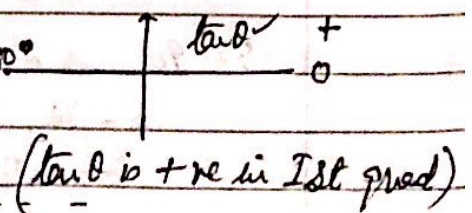 +
tanθ ✓
0° 0
(tanθ is +ve in Ist quad)